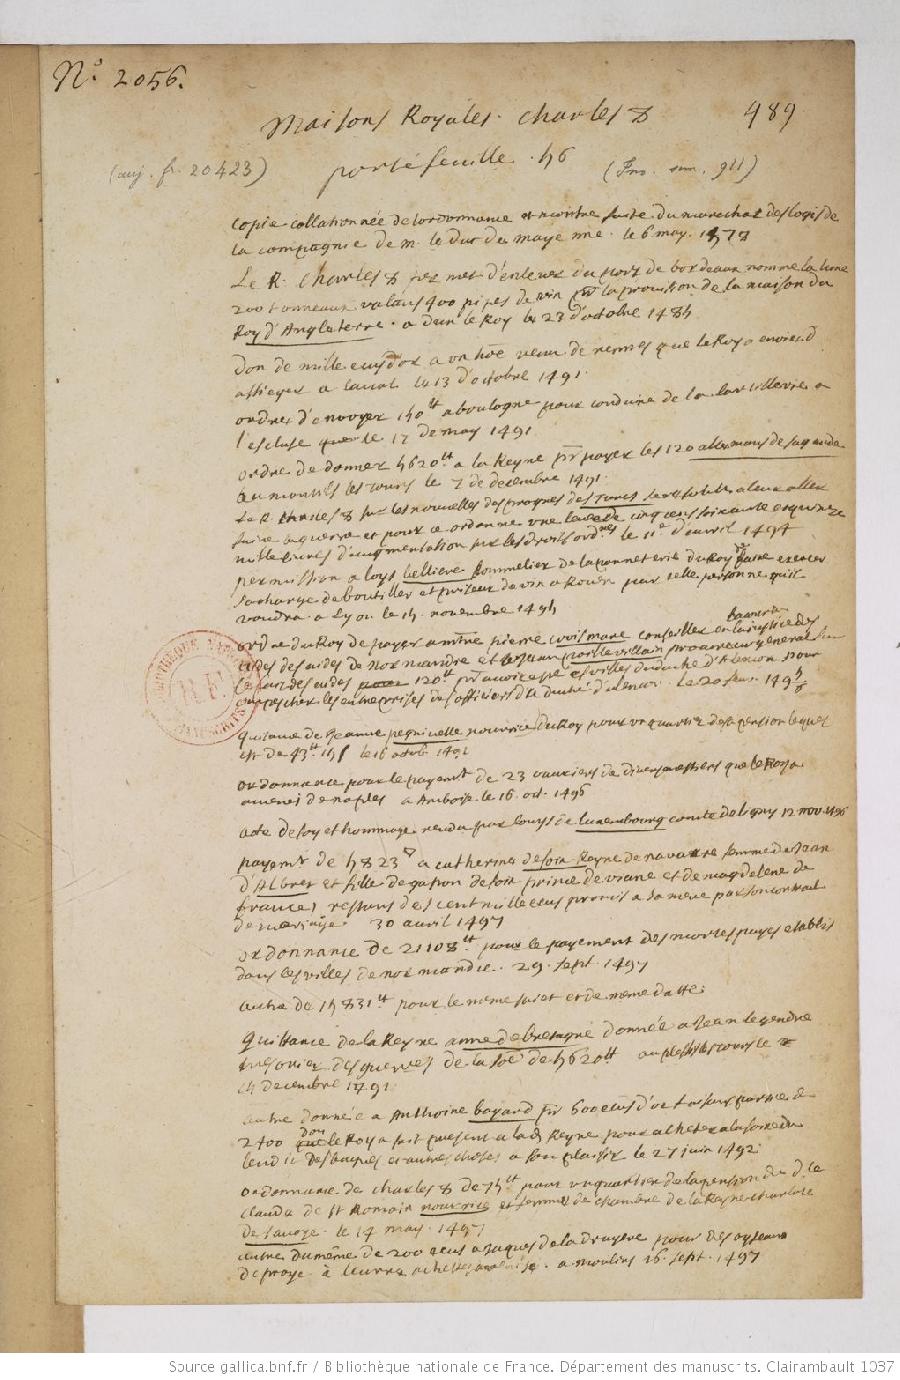 N.° 2056.
489
Maisons Royales. Charles 8
portefeuille. 56
(auj. fr. 20423)
copie collationnée de l'ordonnance et montre faite du marechal des logis de
la compagnie de m. le Duc du mayenne. le 6 may. 1577
Le R. Charles 8 permet d'enlever du port de bordeaux nomme la lune
200 tonneaux valans 400 pipes de vin pr la provision de la maison du
Roy d'Angleterre. a le Roy le 23 d'octobre 1485
Don de mille escus d'or a un hoe venu de rennes que le Roy a envoie
assieger a laval le 13 d'octobre 1491.
ordre d'envoyer 150tt a boulogne pour conduire de la l'artillerie a
l'escluse le 17 de may 1491
ordre de donner 5620tt a la Reyne pr payer les 120 allemans de sa garde
au montils les tours le 7 de decembre 1491.
Le R. Charles 8 sur les nouvelles des progrés des Turcs
faire la guerre et pour ce ordonne une levée de cinq cens soixante et quinze
mille livres d'augmentation sur les droits ordres le 11e d'avril 1497
permission a loys Lelliere sommelier de la panneterie du Roy de faire exercer
sa charge de boutillier et priseur de vin a Rouen par telle personne qu'il
voudra. a Lyon le 15. novembre 1495
ordre du Roy de payer a mtre pierre conseiller en la justice des
aides de normandie et a Jean procureur general
des aides 120tt pr avoir esté es villes du duché d'Alencon pour
empescher les entreprises des officiers de la duché d'alencon. le 20 fevr. 149
quittance de Jeanne pequinelle nourrice du Roy pour un quartier de sa pension lequel
est de 43tt 15s le 16 octob. 1491
ordonnance pour le payemt de 23 ouvriers de divers mestiers que le Roy a
amenés de naples a Amboise. le 16. oct. 1496
acte de foy et hommage rendu par Louys de Luxembourg comte de ligny 12 nov. 1496
payemt de 5823 a catherine de foix Reyne de navarre femme de Jean
d'Albret et fille de gaston de foix prince de viane et de magdelene de
france, restans de cent mille escus promis a sa mere par son contrat
de mariage. 30 avril 1497
ordonnance de 21108tt pour le payement des mortes payes etablis
dans les villes de normandie. 29. sept. 1497
autre de 15831tt pour le meme sujet et de meme datte.
Quittance de la Reyne anne de bretagne donnée a Jean legendre
tresorier des guerres de la soe de 5620tt au plessis les tours le
14 decembre 1491.
autre donnée a Anthoine bayard pr 600 escus d'or faisant partie de
2400 dont le Roy a fait present a lad. Reyne pour acheter a la foire du
lendit des bagues et autres choses a son plaisir le 27 juin 1492.
ordonnance de Charles 8 de 75tt pour un quartier de la pension de d.le
claude de St Romain nourrice et femme de chambre de la Reyne charlote
de Savoye. le 14 may. 1497
autre du même de 200 escus a Jaques de la Bruyere pour des oyseaux
de proye a leurre achettez a moulins 16. sept. 1497
BIBLIOTHEQUE NATIONALE
R.F.
MANUSCRITS
Source gallica.bnf.fr / Bibliothèque nationale de France. Département des manuscrits. Clairambault 1037